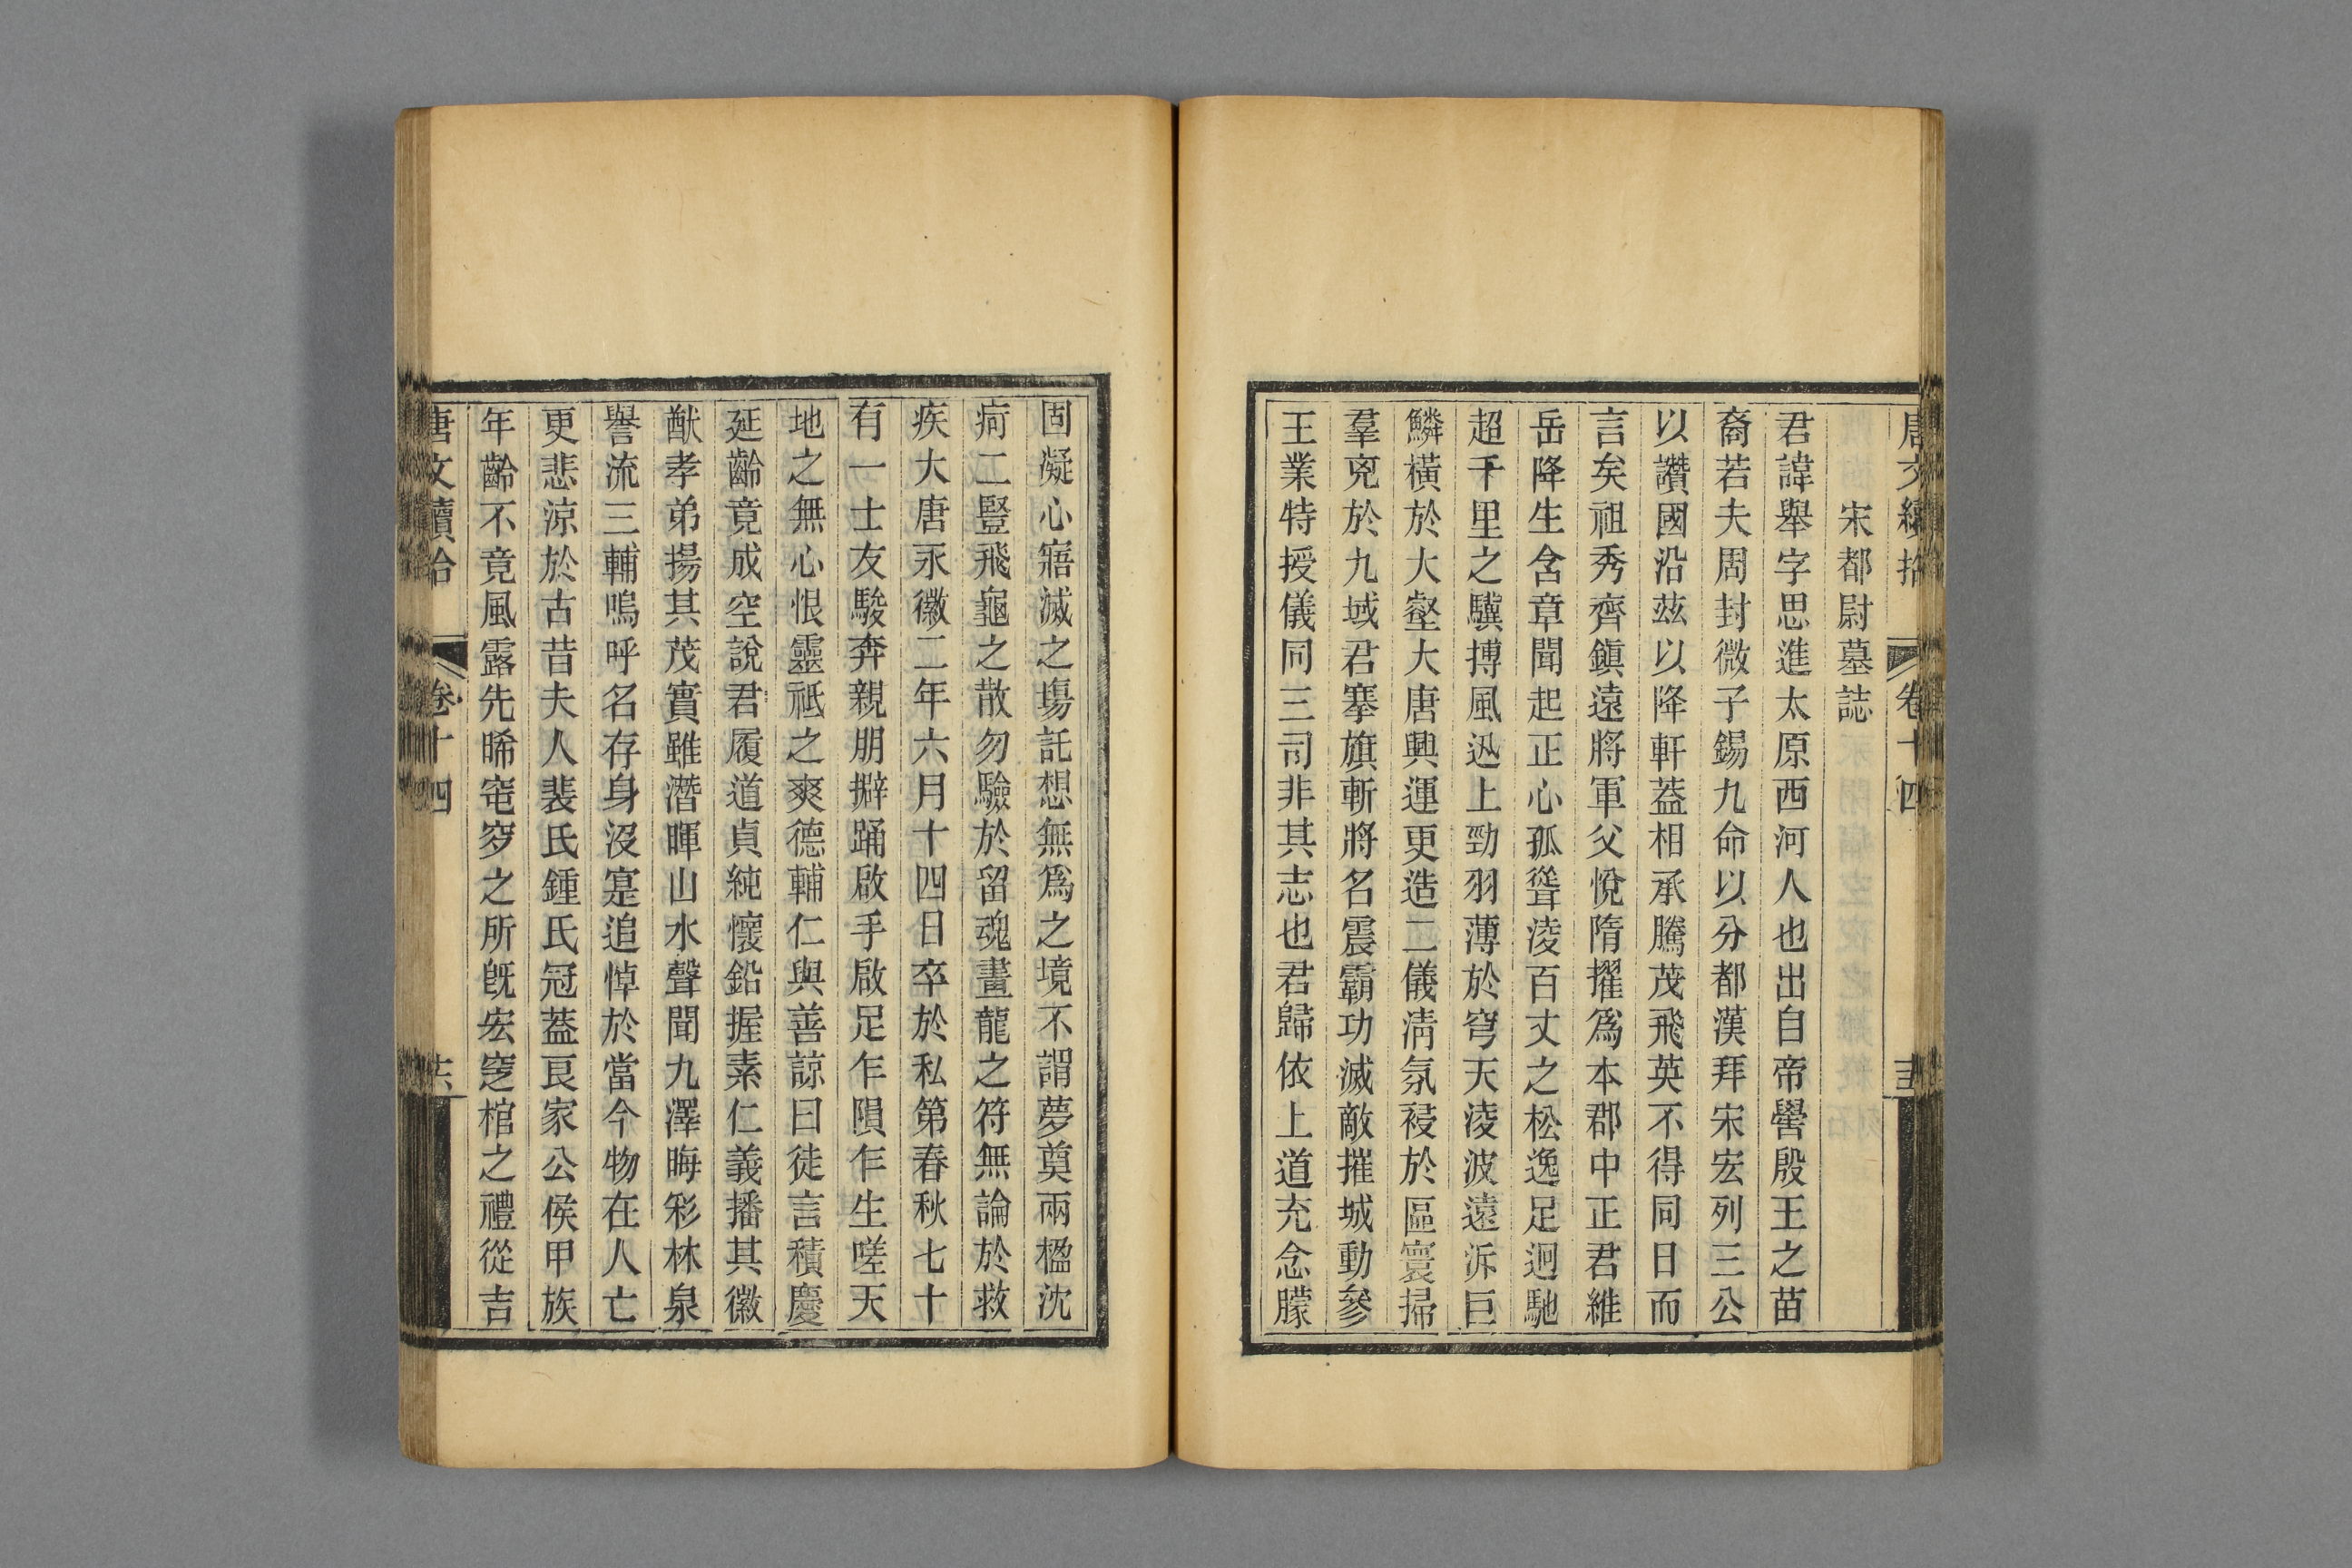 唐文續拾 卷十四
宋都尉墓誌
君諱舉字思進太原西河人也出自帝嚳殷王之苗
裔若夫周封微子錫九命以分都漢拜宋宏列三公
以讚國沿茲以降軒蓋相承騰茂飛英不得同日而
言矣祖秀齊鎭遠將軍父悅隋擢爲本郡中正君維
岳降生含章聞起正心孤聳淩百丈之松逸足迥馳
超千里之驥摶風迅上勁羽薄於穹天淩波遠泝巨
鱗橫於大壑大唐興運更造二儀淸氛祲於區寰掃
羣兇於九域君搴旗斬將名震霸功滅敵摧城動參
王業特授儀同三司非其志也君歸依上道充念朦
固凝心寤滅之場託想無爲之境不謂夢奠兩楹沈
疴二豎飛龜之散勿驗於留魂畫龍之符無論於救
疾大唐永徽二年六月十四日卒於私第春秋七十
有一士友駿奔親朋擗踊啟手啟足乍隕乍生嗟天
地之無心恨靈祇之爽德輔仁與善諒曰徒言積慶
延齡竟成空說君履道貞純懷鉛握素仁義播其徽
猷孝弟揚其茂實雖潛暉山水聲聞九澤晦彩林泉
譽流三輔嗚呼名存身沒寔追悼於當今物在人亡
更悲涼於古昔夫人裴氏鍾氏冠蓋良家公侯甲族
年齡不竟風露先晞窀穸之所旣宏窆棺之禮從吉
唐文續拾 卷十四 十六